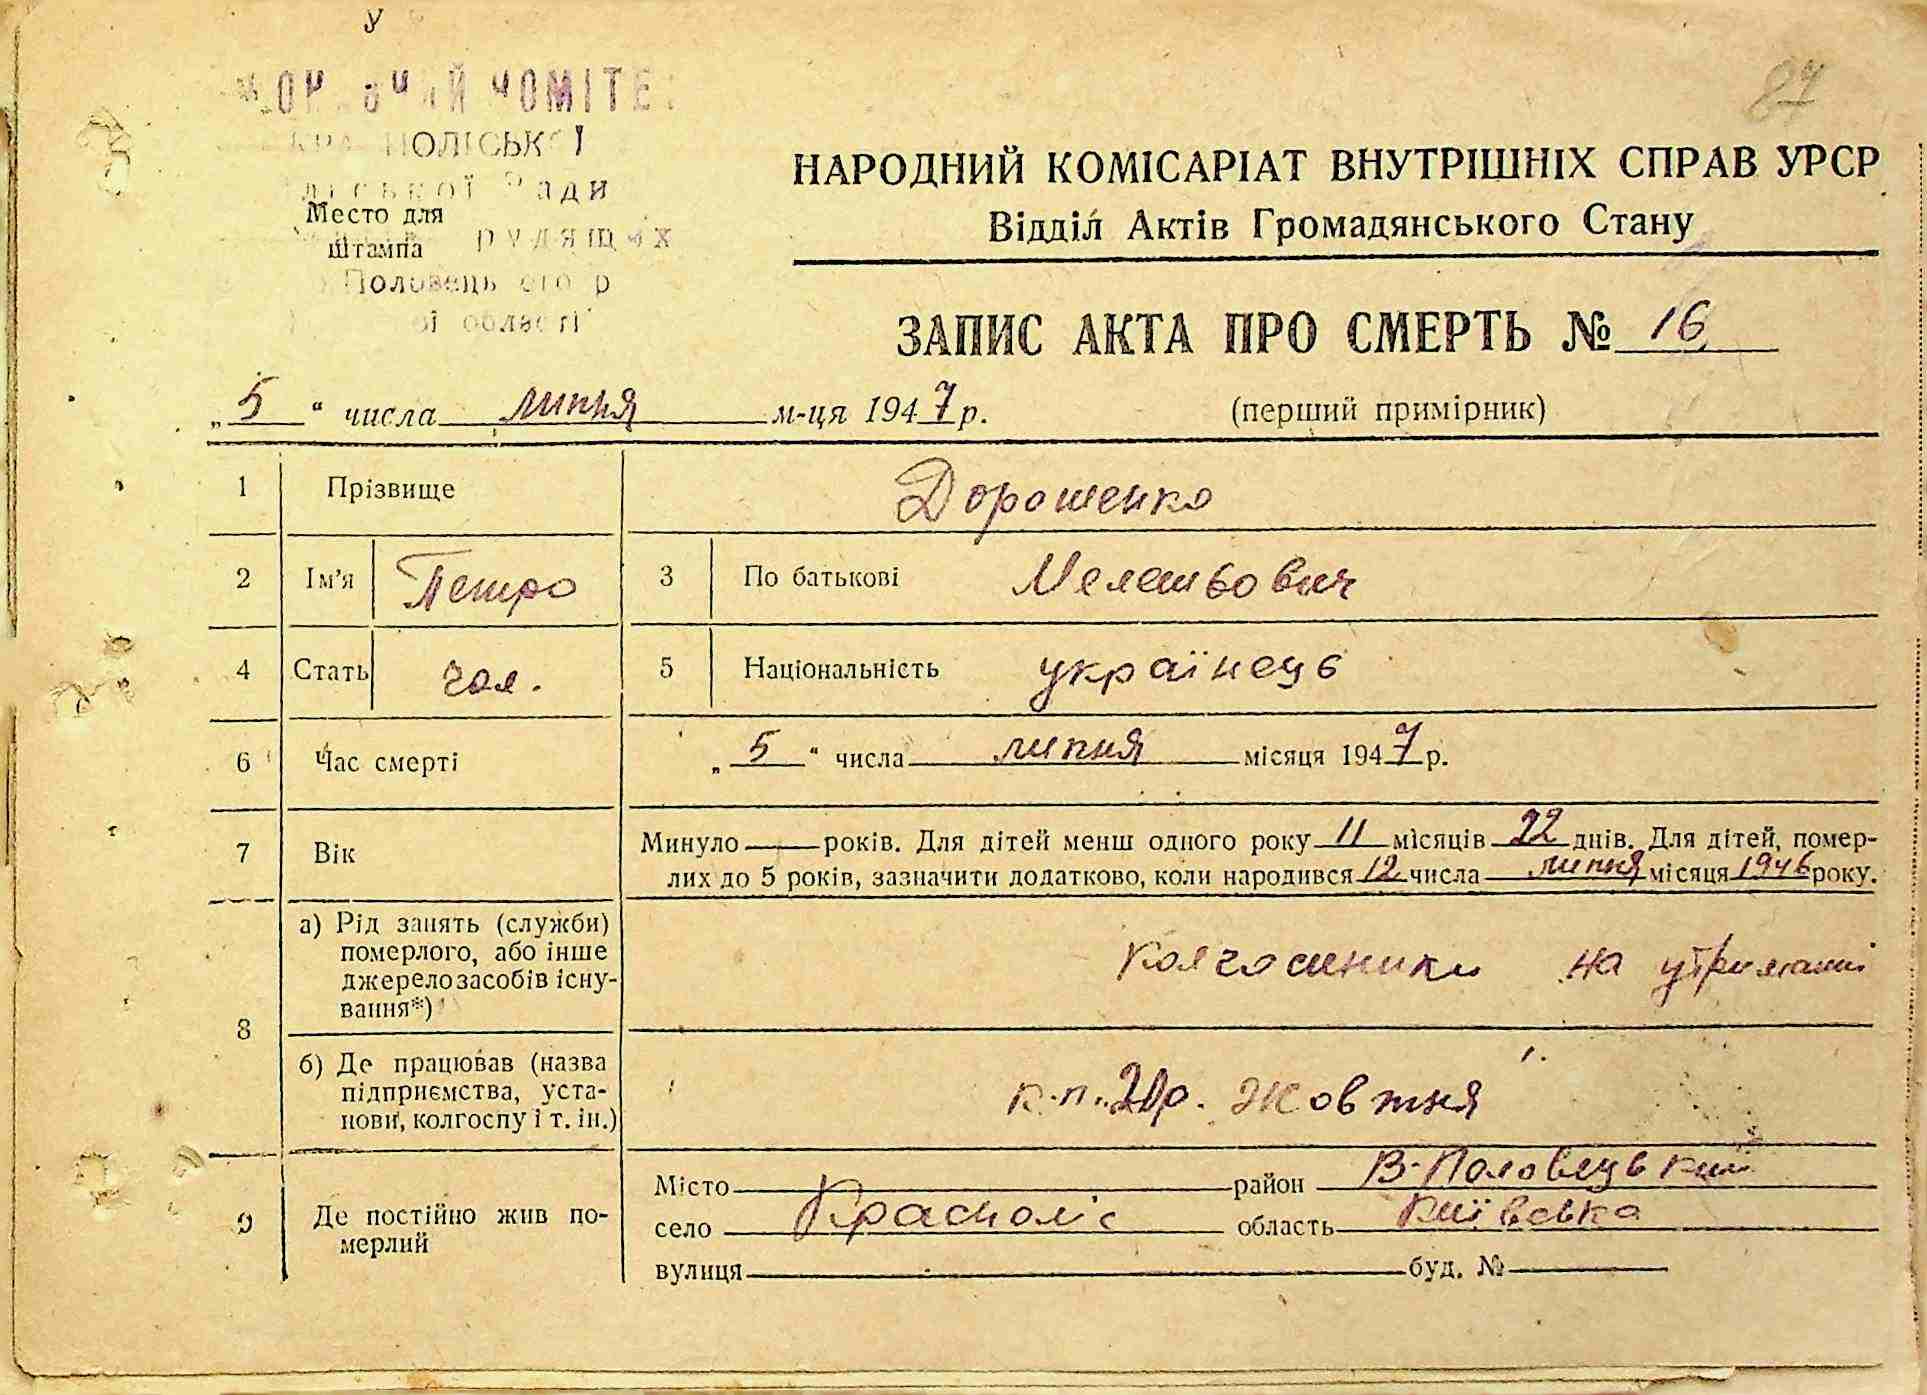 87
НАРОДНИЙ КОМІСАРІАТ ВНУТРІШНІХ СПРАВ УРСР
Відділ Актів Громадянського Стану
Место для
штампа
ЗАПИС АКТА ПРО СМЕРТЬ № 16
„5“ числа липня м-ця 1947 р.
(перший примірник)
1 Прізвище Дорошенко
2 Ім’я Петро 3 По батькові Мелетьович
4 Стать чол. 5 Національність українець
6 Час смерті „5“ числа липня місяця 1947 р.
7 Вік Минуло — років. Для дітей менш одного року 11 місяців 22 днів. Для дітей, помер-
лих до 5 років, зазначити додатково, коли народився 12 числа липня місяця 1946 року.
8 а) Рід занять (служби)
померлого, або інше
джерело засобів існу-
вання*)
колгоспники на утриманні
б) Де працював (назва
підприємства, уста-
нови, колгоспу і т. ін.)
к.п. „20р. Жовтня
9 Де постійно жив по-
мерлий
Місто район В-Половецький
село Красноліс область Київська
вулиця буд. №